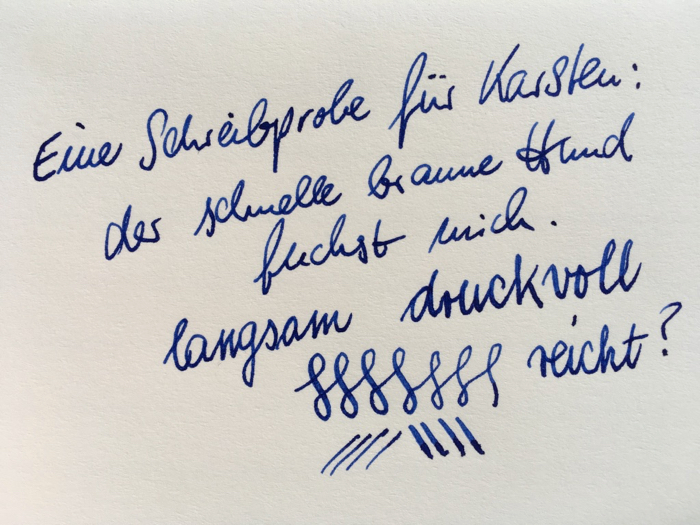 Eine Schreibprobe für Karsten:
der schnelle braune Hund
fuchst mich.
langsam druckvoll
reicht?